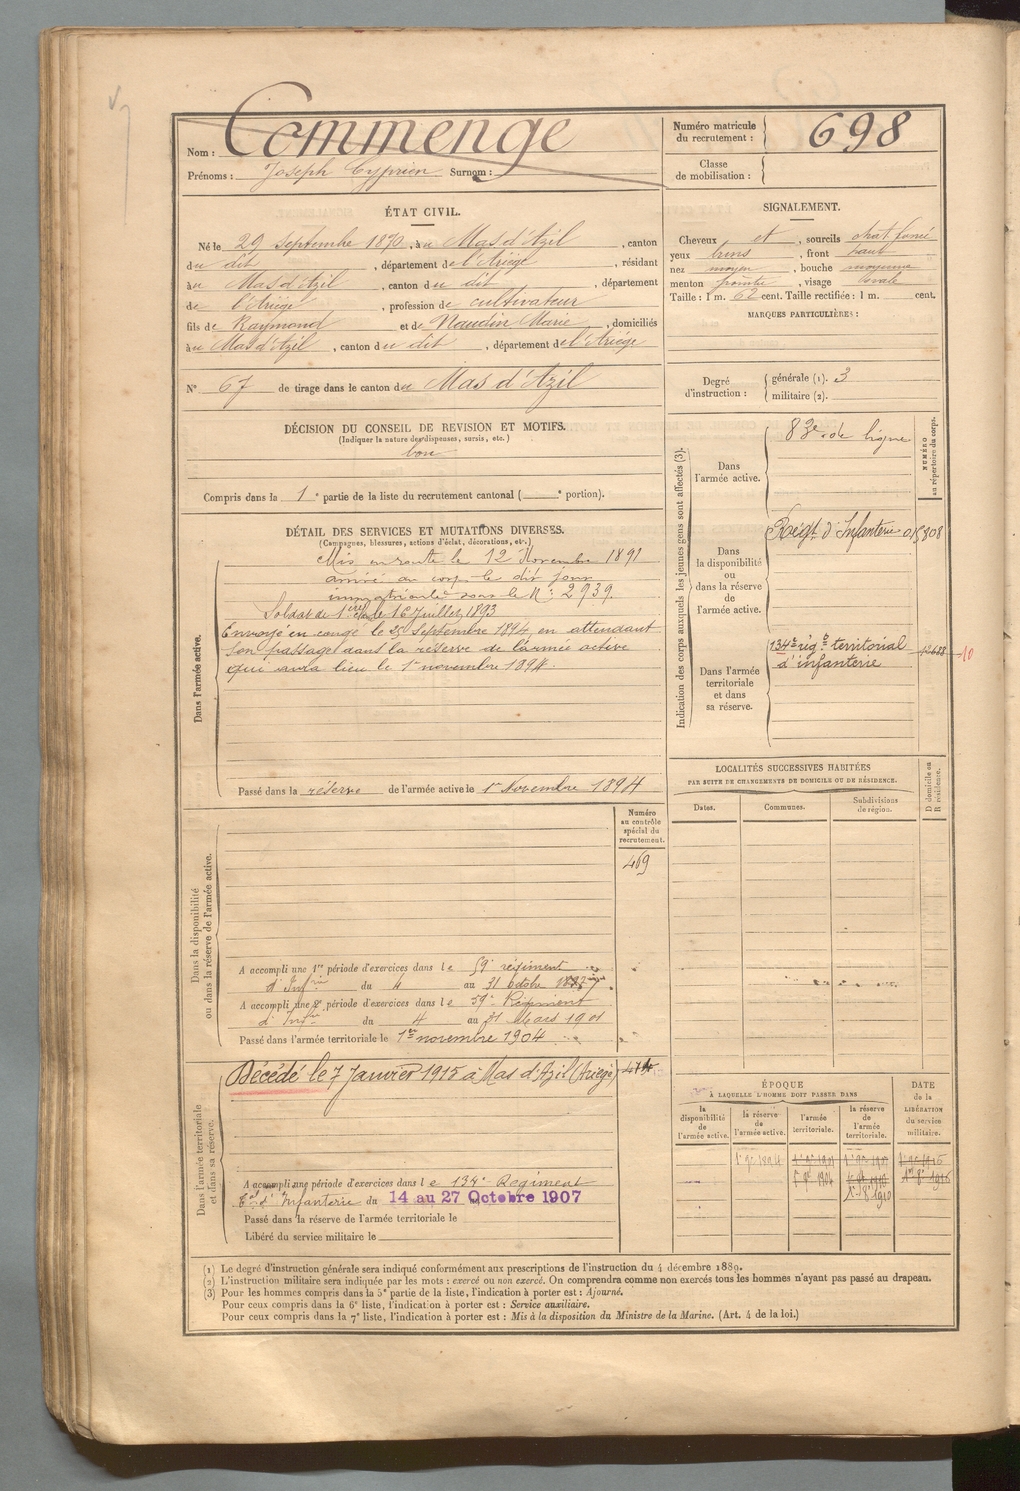 Nom : Commenge
Prénoms : Joseph Cyprien Surnom :
Numéro matricule du recrutement : 698
Classe de mobilisation :
ÉTAT CIVIL.
Né le 29 septembre 1870, à u Mas d'Azil, canton
du dit, département de l'Ariège, résidant
à u Mas d'Azil, canton du dit, département
de l'Ariège, profession de cultivateur
fils de Raymond et de Naudin Marie, domiciliés
à u Mas d'Azil, canton du dit, département de l'Ariège
N° 67 de tirage dans le canton de Mas d'Azil
SIGNALEMENT.
Cheveux et, sourcils chat. foncé
yeux bruns, front haut
nez moyen, bouche moyenne
menton pointu, visage ovale
Taille : 1 m. 62 cent. Taille rectifiée : 1 m. cent.
MARQUES PARTICULIÈRES :
Degré d'instruction : générale (1). 3
militaire (2).
DÉCISION DU CONSEIL DE REVISION ET MOTIFS.
(Indiquer la nature des dispenses, sursis, etc.)
bon
Compris dans la 1e partie de la liste du recrutement cantonal ( e portion).
DÉTAIL DES SERVICES ET MUTATIONS DIVERSES.
(Campagnes, blessures, actions d'éclat, décorations, etc.)
Dans l'armée active.
Mis en route le 12 Novembre 1891
arrivé au corps le dit jour
immatriculé sous le N° 2939.
Soldat de 1ère classe le 16 Juillet 1893
Envoyé en congé le 25 Septembre 1894 en attendant
son passage dans la réserve de l'armée active
qui aura lieu le 1er novembre 1894.
Passé dans la réserve de l'armée active le 1er Novembre 1894
Indication des corps auxquels les jeunes gens sont affectés (3).
NUMÉRO au répertoire du corps.
Dans l'armée active.
83e de ligne
Dans la disponibilité ou dans la réserve de l'armée active.
Régt d'Infanterie
Dans l'armée territoriale et dans sa réserve.
134e rég. territorial
d'infanterie
10
LOCALITÉS SUCCESSIVES HABITÉES
PAR SUITE DE CHANGEMENTS DE DOMICILE OU DE RÉSIDENCE.
D domicile ou R résidence.
Dates.
Communes.
Subdivisions de région.
Dans la disponibilité ou dans la réserve de l'armée active.
Numéro au contrôle spécial du recrutement.
469
A accompli une 1re période d'exercices dans le 59e régiment
d'Infrie du 4 au 31 octobre
A accompli une 2e période d'exercices dans le 59e Régiment
d'Infrie du 4 au 31 Mars 1901
Passé dans l'armée territoriale le 1er novembre 1904
Dans l'armée territoriale et dans sa réserve.
Décédé le 7 Janvier 1915 à Mas d'Azil (Ariège)
A accompli une période d'exercices dans le 134e Régiment
Tal d'Infanterie du 14 au 27 Octobre 1907
Passé dans la réserve de l'armée territoriale le
Libéré du service militaire le
ÉPOQUE
À LAQUELLE L'HOMME DOIT PASSER DANS
la disponibilité de l'armée active.
la réserve de l'armée active.
l'armée territoriale.
la réserve de l'armée territoriale.
DATE de la LIBÉRATION du service militaire.
(1) Le degré d'instruction générale sera indiqué conformément aux prescriptions de l'instruction du 4 décembre 1889.
(2) L'instruction militaire sera indiquée par les mots : exercé ou non exercé. On comprendra comme non exercés tous les hommes n'ayant pas passé au drapeau.
(3) Pour les hommes compris dans la 5e partie de la liste, l'indication à porter est : Ajourné.
Pour ceux compris dans la 6e liste, l'indication à porter est : Service auxiliaire.
Pour ceux compris dans la 7e liste, l'indication à porter est : Mis à la disposition du Ministre de la Marine. (Art. 4 de la loi.)